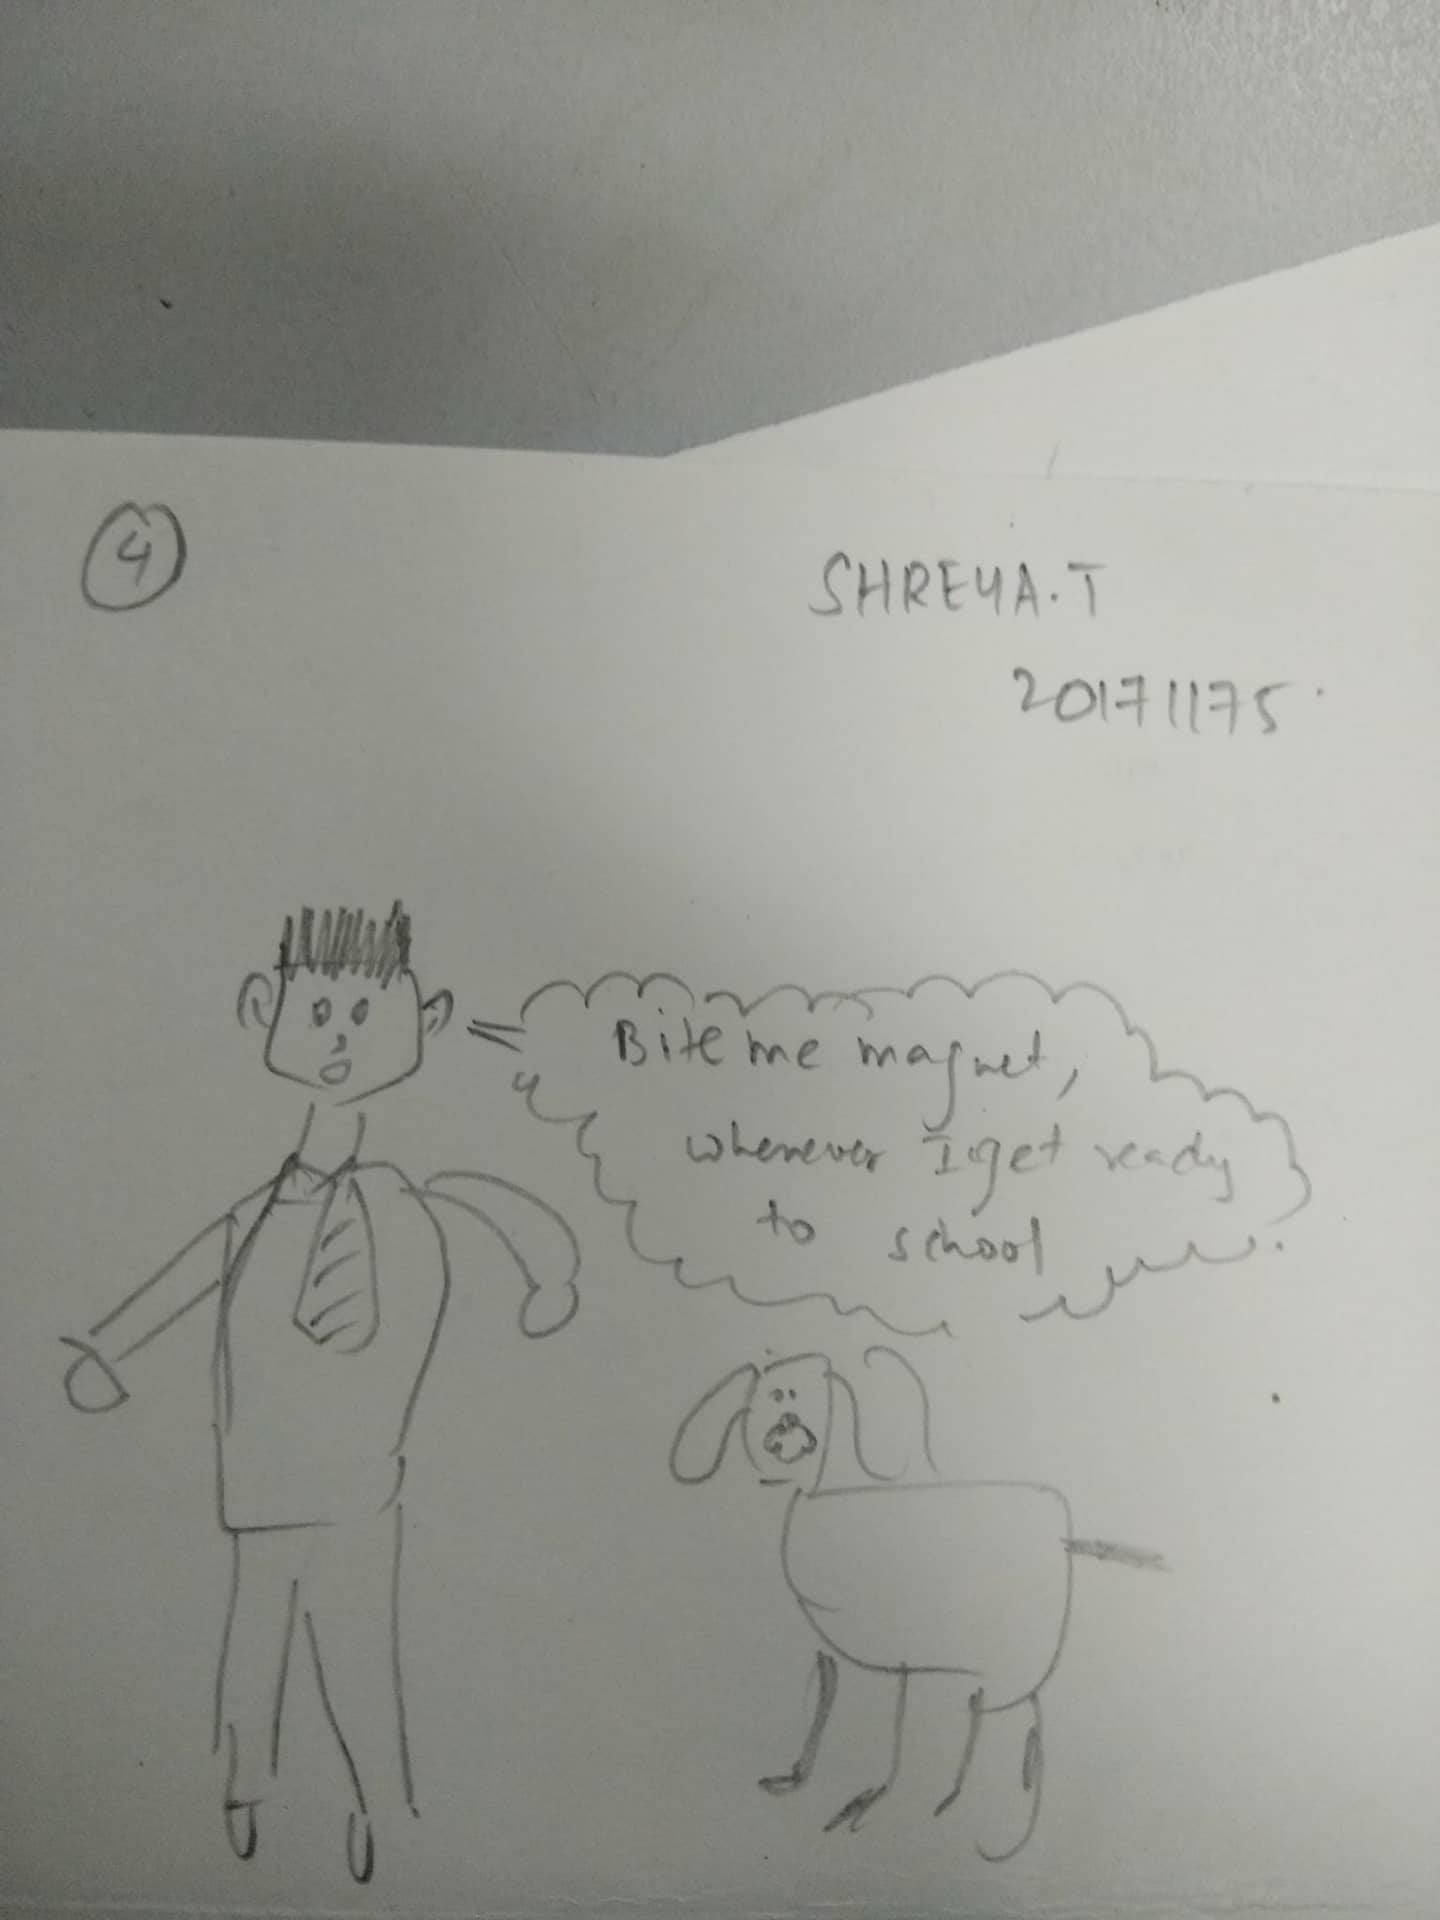 4
SHREYA.T
20171175.
Bite me magnet,
whenever I get ready
to school